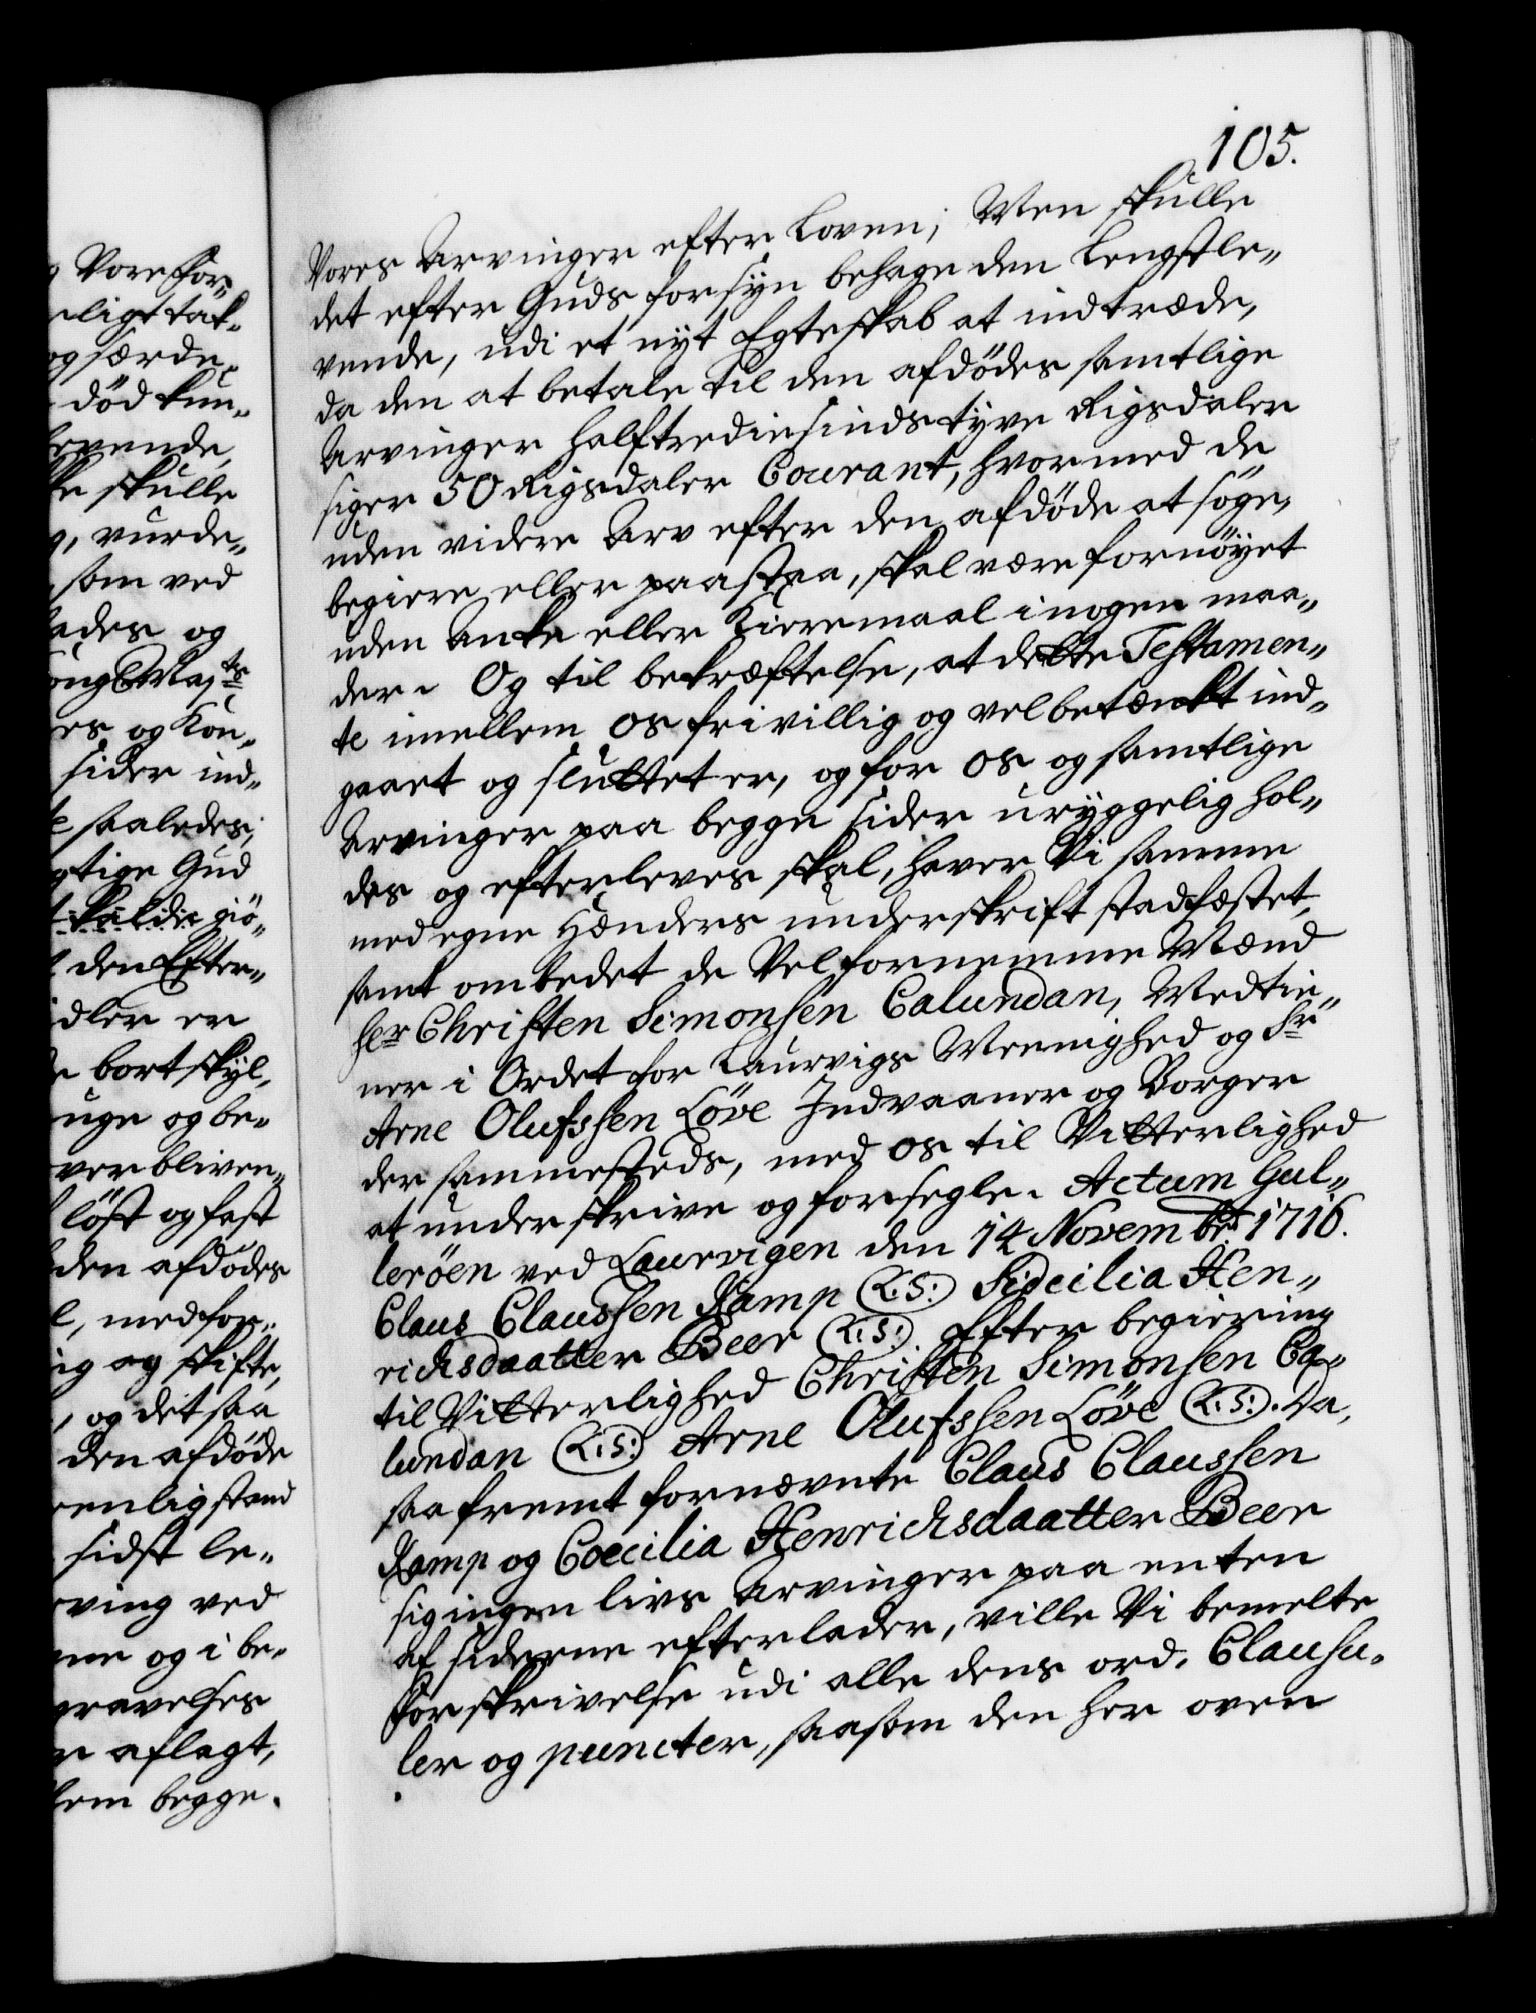 105.
Vores Arvinger efter Loven; Men skulle
det efter Guds forsÿn behage den Lengstle„
vende, udi et nÿt Egteskab at indtræde,
da den at betale til den afdödes samtlige
Arvinger halftrediesindstÿve Rigsdaler
siger 50 Rigsdaler Courant, hvormed de
uden videre Arv efter den afdöde at söge,
begiere eller paastaa, skal være fornöÿet
uden Anke eller Kieremaal i nogen maa„
der. Og til bekræftelse, at dette Testamen„
te imellem os frivillig og velbetænkt ind„
gaaet og sluttet er, og for os og samtlige
Arvinger paa begge sider urÿggelig hol„
des og efterleves skal, haver Vi samme
med egne Hænders underskrift stadfæstet,
samt ombedet de Velfornemme Mænd
Hr Christen Simonsen Calundan, Medtie„
ner i Ordet for Laurvigs Meenighed og Sr
Arne Olufssen Löve Indvaaner og Borger
der sammesteds, med os til Vitterlighed
at underskrive og forsegle. Actum Gul„
leröen ved Laurvigen den 14 Novembr 1716.
Claus Claussen Kamp (L.S.) Sidcilia Hen„
richsdaatter Beer (L.S.) Efter begiering
til Vitterlighed Christen Simonsen Ca„
lundan (L.S.) Arne Olufssen Löve (L.S.). Da,
saafremt fornævnte Claus Claussen
Kamp og Coecilia Henrichsdaatter Beer
sig ingen livs Arvinger paa enten
af siderne efterlader, ville Vi bemelte
Forskrivelse udi alle dens ord, Clausu„
ler og puncter, saasom den her oven
Vore For„
eligt tak„
og særde„
död kun„
levende,
skulle
, vurde„
som ved
ades og
Kong May:ts
es og Kon„
sider ind„
saaledes,
tige Gud
kalde giö„
den Efter„
idler er
bortskÿl„
uge og be„
ver bliven„
löst og fast
den afdödes
, medfor„
ig og skifte,
, og det saa
den afdöde
enlig stand
sidst le„
ving ved
me og i be„
gravelses
aflagt,
lem begge.